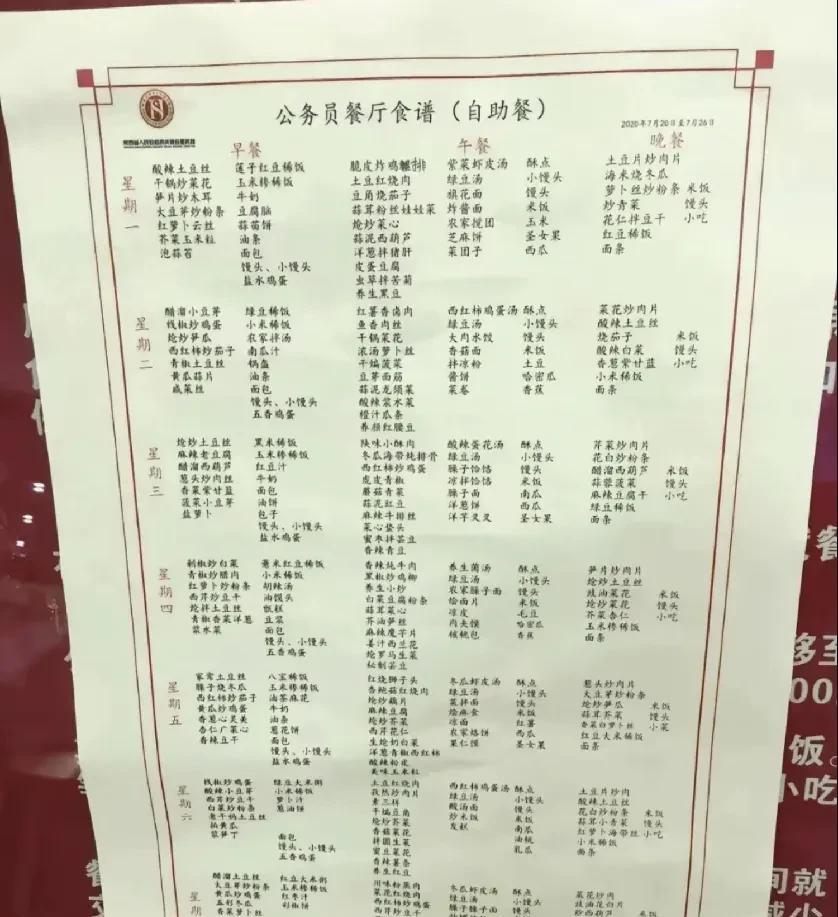 公务员餐厅食谱（自助餐）
2020年7月20日至7月26日
早餐 午餐 晚餐
星期一
酸辣土豆丝 莲子红豆稀饭
干锅炒菜花 玉米糁稀饭
笋片炒木耳 牛奶
大豆芽炒粉条 豆腐脑
红萝卜云丝 蒜苗饼
芥菜玉米粒 油条
泡蒜苔 面包
馒头、小馒头
盐水鸡蛋
脆皮炸鸡 紫菜虾皮汤 酥点
土豆红烧肉 绿豆汤 小馒头
豆角烧茄子 旗花面 馒头
蒜茸粉丝娃娃菜 炸酱面 米饭
炝炒菜心 农家搅团 玉米
蒜泥西葫芦 芝麻饼 圣女果
洋葱拌猪肝 菜团子 西瓜
皮蛋豆腐
虫草拌苦菊
养生黑豆
土豆片炒肉片
海米烧冬瓜
萝卜丝炒粉条 米饭
炒青菜 馒头
花仁拌豆干 小吃
红豆稀饭
面条
星期二
醋溜小豆芽 绿豆稀饭
线椒炒鸡蛋 小米稀饭
炝炒笋瓜 农家拌汤
西红柿炒茄子 南瓜汁
青椒土豆丝 锅盔
黄瓜蒜片 油条
咸菜丝 面包
馒头、小馒头
五香鸡蛋
红薯香卤肉 西红柿鸡蛋汤 酥点
鱼香肉丝 绿豆汤 小馒头
干锅菜花 大肉水饺 馒头
浓汤萝卜丝 香菇面 米饭
干煸菠菜 拌凉粉 土豆
豆芽面筋 酱饼 哈密瓜
蒜泥龙须菜 菜卷 香蕉
酸辣浆水菜
橙汁瓜条
养颜红腰豆
菜花炒肉片
酸辣土豆丝
烧茄子 米饭
酸辣白菜 馒头
香葱紫甘蓝 小吃
小米稀饭
面条
星期三
炝炒土豆丝 黑米稀饭
麻辣老豆腐 玉米糁稀饭
醋溜西葫芦 红豆汁
葱头炒肉丝 牛奶
香菜紫甘蓝 面包
菠菜小豆芽 油饼
盐萝卜 包子
馒头、小馒头
盐水鸡蛋
陕味小酥肉 酸辣蛋花汤 酥点
冬瓜海带炖排骨 绿豆汤 小馒头
西红柿炒鸡蛋 臊子饸饹 馒头
虎皮青椒 凉拌饸饹 米饭
蘑菇青菜 臊子面 南瓜
蒜泥豇豆 洋葱饼 西瓜
麻辣牛排丝 洋芋叉叉 圣女果
菜心蛰头
蜜枣拌芸豆
香辣青豆
芹菜炒肉片
花白炒粉条
醋溜西葫芦 米饭
蒜蓉菠菜 馒头
麻辣豆腐干 小吃
绿豆稀饭
面条
星期四
剁椒炒白菜 薏米红豆稀饭
青椒炒腊肉 小米稀饭
红萝卜炒粉条 胡辣汤
西芹炒豆干 油馍头
炝拌土豆丝 甑糕
青椒香菜洋葱 豆浆
浆水菜 面包
馒头、小馒头
五香鸡蛋
香辣炖牛肉 养生菌汤 酥点
黑椒炒鸡柳 绿豆汤 小馒头
养生小炒 农家臊子面 馒头
白菜豆腐粉条 烩面片 米饭
蒜茸菜心 凉皮 毛豆
芥油笋丝 肉夹馍 哈密瓜
麻辣魔芋片 核桃包 香蕉
姜汁西兰花
炝罗马生菜
秘制芸豆
笋片炒肉片
炝炒土豆丝
豉油菜花 米饭
炝炒菜花 馒头
芥菜杏仁 小吃
玉米糁稀饭
面条
星期五
家常土豆丝 八宝稀饭
臊子烧冬瓜 玉米糁稀饭
西红柿炒茄子 油茶麻花
黄瓜炒鸡蛋 牛奶
香葱心灵美 油条
杏仁广菜心 葱花饼
香辣豆干 面包
馒头、小馒头
盐水鸡蛋
红烧狮子头 冬瓜虾皮汤 酥点
杏鲍菇红烧肉 绿豆汤 小馒头
炝炒藕片 菜拌面 馒头
麻辣豆腐 烩麻食 米饭
炝炒芥菜 凉面 红薯
西芹花仁 农家烙饼 西瓜
生炝奶白菜 果仁馍 圣女果
洋葱青椒西红柿
酸辣粉皮
美味玉米粒
葱头炒肉片
大豆芽炒粉条
炝炒笋瓜 米饭
蒜茸芥菜 馒头
香菜白萝卜丝 小菜
红豆大米稀饭
面条
星期六
线椒炒鸡蛋 绿豆大米粥
酸辣小豆芽 小米稀饭
西芹炒豆干 萝卜汁
白菜炒粉条 葱油饼
老干妈土豆丝
拍黄瓜
莴笋丁 面包
馒头、小馒头
五香鸡蛋
土豆红烧肉 西红柿鸡蛋汤 酥点
孜然炒肉片 绿豆汤 小馒头
素三样 酸汤面 馒头
干煸豆角 炒米饭 米饭
炝炒芥菜 发糕 南瓜
香菇菜花 油桃
拌圆生菜 乳瓜
蜜豆菜花
香辣薯条
养生红豆
土豆片炒肉
酸辣土豆丝
花白炒粉条 米饭
蒜茸小青菜 馒头
红萝卜海带丝 小吃
小米稀饭
面条
星期
醋溜土豆丝 红豆大米粥
大豆芽炒粉条 玉米糁稀饭
黄瓜炒鸡蛋 红枣汁
五彩冬瓜 彩椒饼
香菜萝卜丝
川味粉蒸肉 冬瓜虾皮汤 酥点
菜花红烧肉 绿豆汤 小馒头
西红柿炒鸡蛋 臊子臊子面 馒头
西芹炒豆干
菜花炒肉
豉油花白片
炒西葫芦
移至
00
饭。
小吃
间就
减少